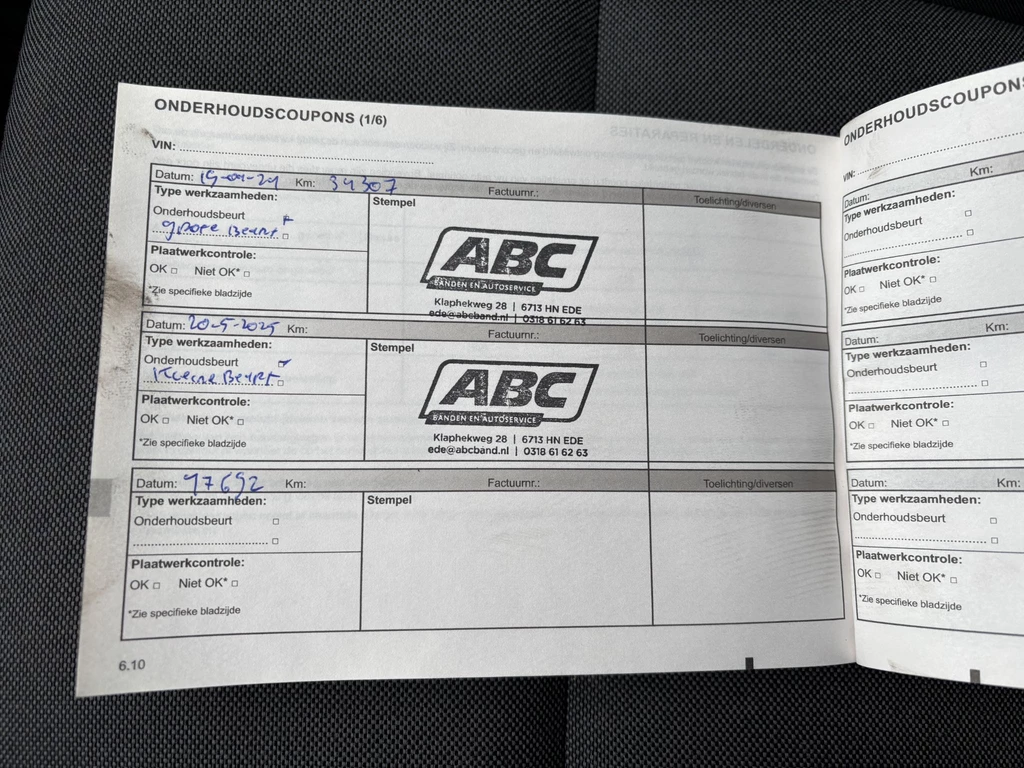 ONDERHOUDSCOUPONS (1/6)
VIN:
Datum: Km: 34307 Factuurnr.: Toelichting/diversen
Type werkzaamheden: Stempel
Onderhoudsbeurt
grote Beurt
ABC
BANDEN EN AUTOSERVICE
Plaatwerkcontrole:
OK □ Niet OK* □
*Zie specifieke bladzijde
Klaphekweg 28 | 6713 HN EDE
ede@abcband.nl | 0318 61 62 63
Datum: 20-5-2025 Km: Factuurnr.: Toelichting/diversen
Type werkzaamheden: Stempel
Onderhoudsbeurt
Kleine Beurt □
ABC
BANDEN EN AUTOSERVICE
Plaatwerkcontrole:
OK □ Niet OK* □
*Zie specifieke bladzijde
Klaphekweg 28 | 6713 HN EDE
ede@abcband.nl | 0318 61 62 63
Datum: 47692 Km: Factuurnr.: Toelichting/diversen
Type werkzaamheden: Stempel
Onderhoudsbeurt □
□
Plaatwerkcontrole:
OK □ Niet OK* □
*Zie specifieke bladzijde
6.10
ONDERHOUDSCOUPONS
VIN:
Datum: Km:
Type werkzaamheden:
Onderhoudsbeurt □
□
Plaatwerkcontrole:
OK □ Niet OK* □
*Zie specifieke bladzijde
Datum: Km:
Type werkzaamheden:
Onderhoudsbeurt □
□
Plaatwerkcontrole:
OK □ Niet OK* □
*Zie specifieke bladzijde
Datum: Km:
Type werkzaamheden:
Onderhoudsbeurt □
□
Plaatwerkcontrole:
OK □ Niet OK* □
*Zie specifieke bladzijde